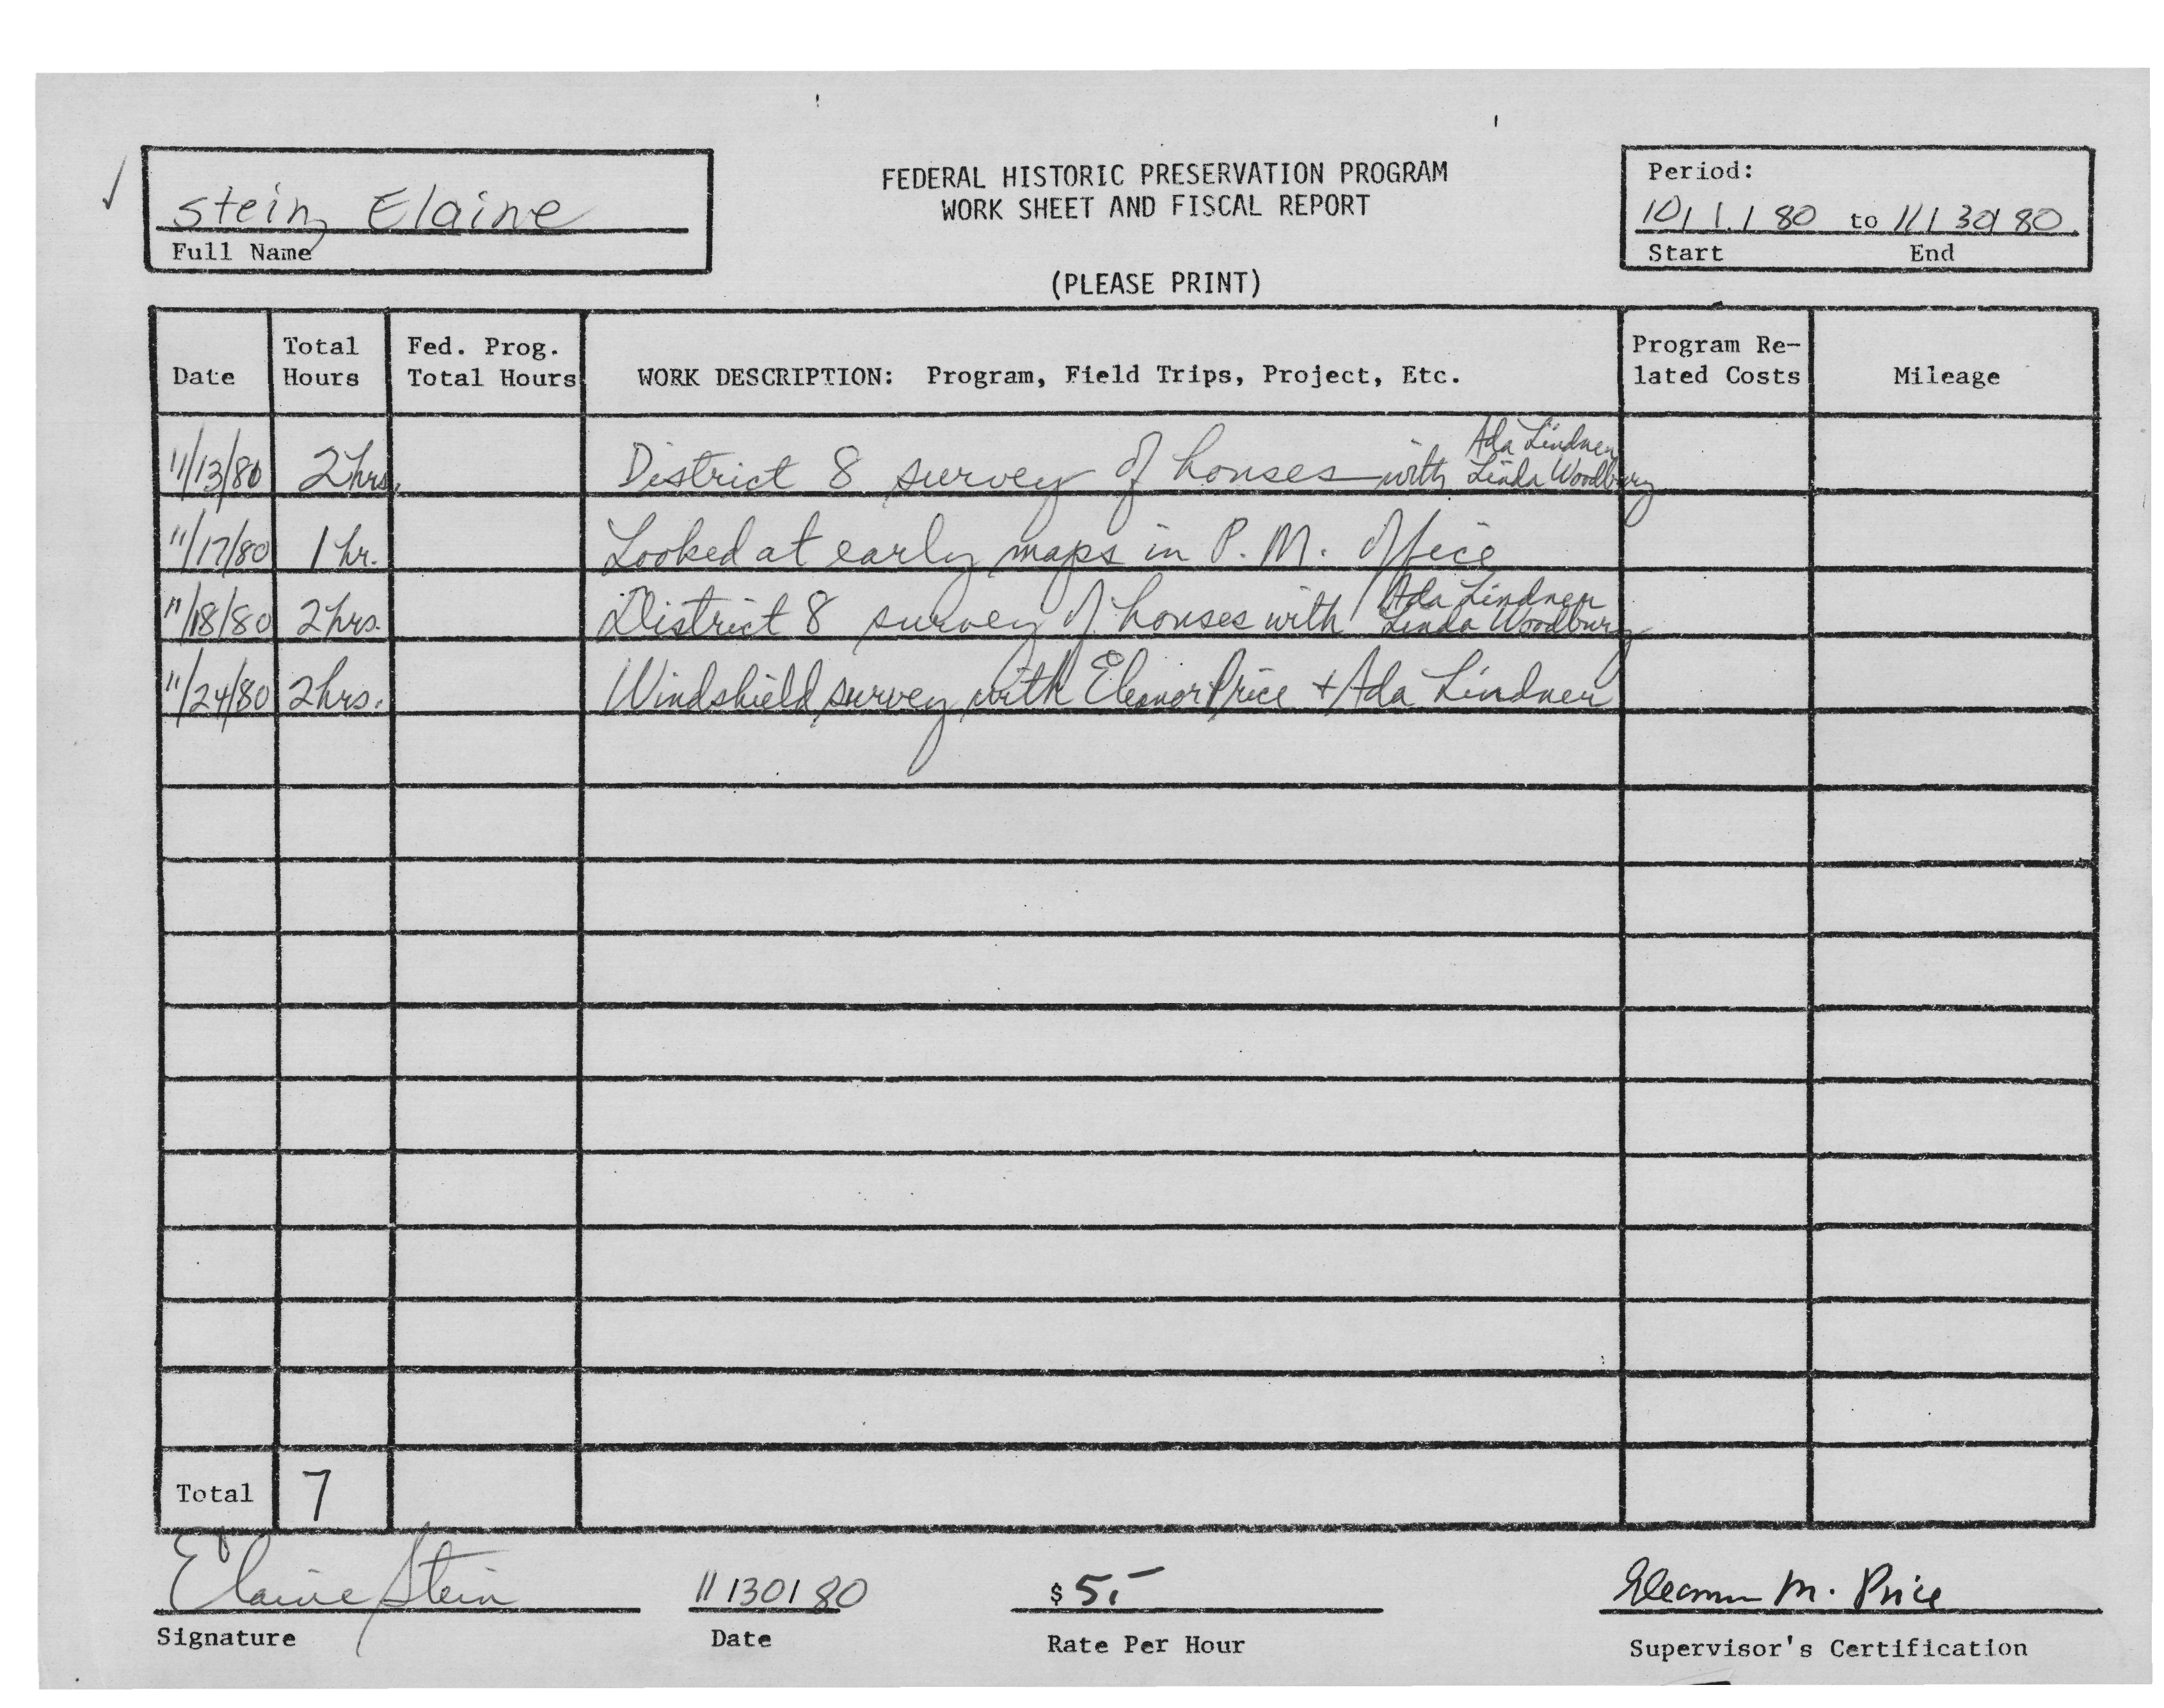 ✓
Stein, Elaine
Full Name
FEDERAL HISTORIC PRESERVATION PROGRAM
WORK SHEET AND FISCAL REPORT
(PLEASE PRINT)
Period:
10/1/80 to 11/30/80
Start End
Date Total Hours Fed. Prog. Total Hours WORK DESCRIPTION: Program, Field Trips, Project, Etc. Program Re-lated Costs Mileage
11/13/80 2 hrs. District 8 survey of houses with Ada Lindner Linda Woodbury
11/17/80 1 hr. Looked at early maps in P. M. office
11/18/80 2 hrs. District 8 survey of houses with Ada Lindner Linda Woodbury
11/24/80 2 hrs. Windshield survey with Eleanor Price + Ada Lindner
Total 7
Elaine Stein 11/30/80 $ 5.- Eleanor M. Price
Signature Date Rate Per Hour Supervisor's Certification